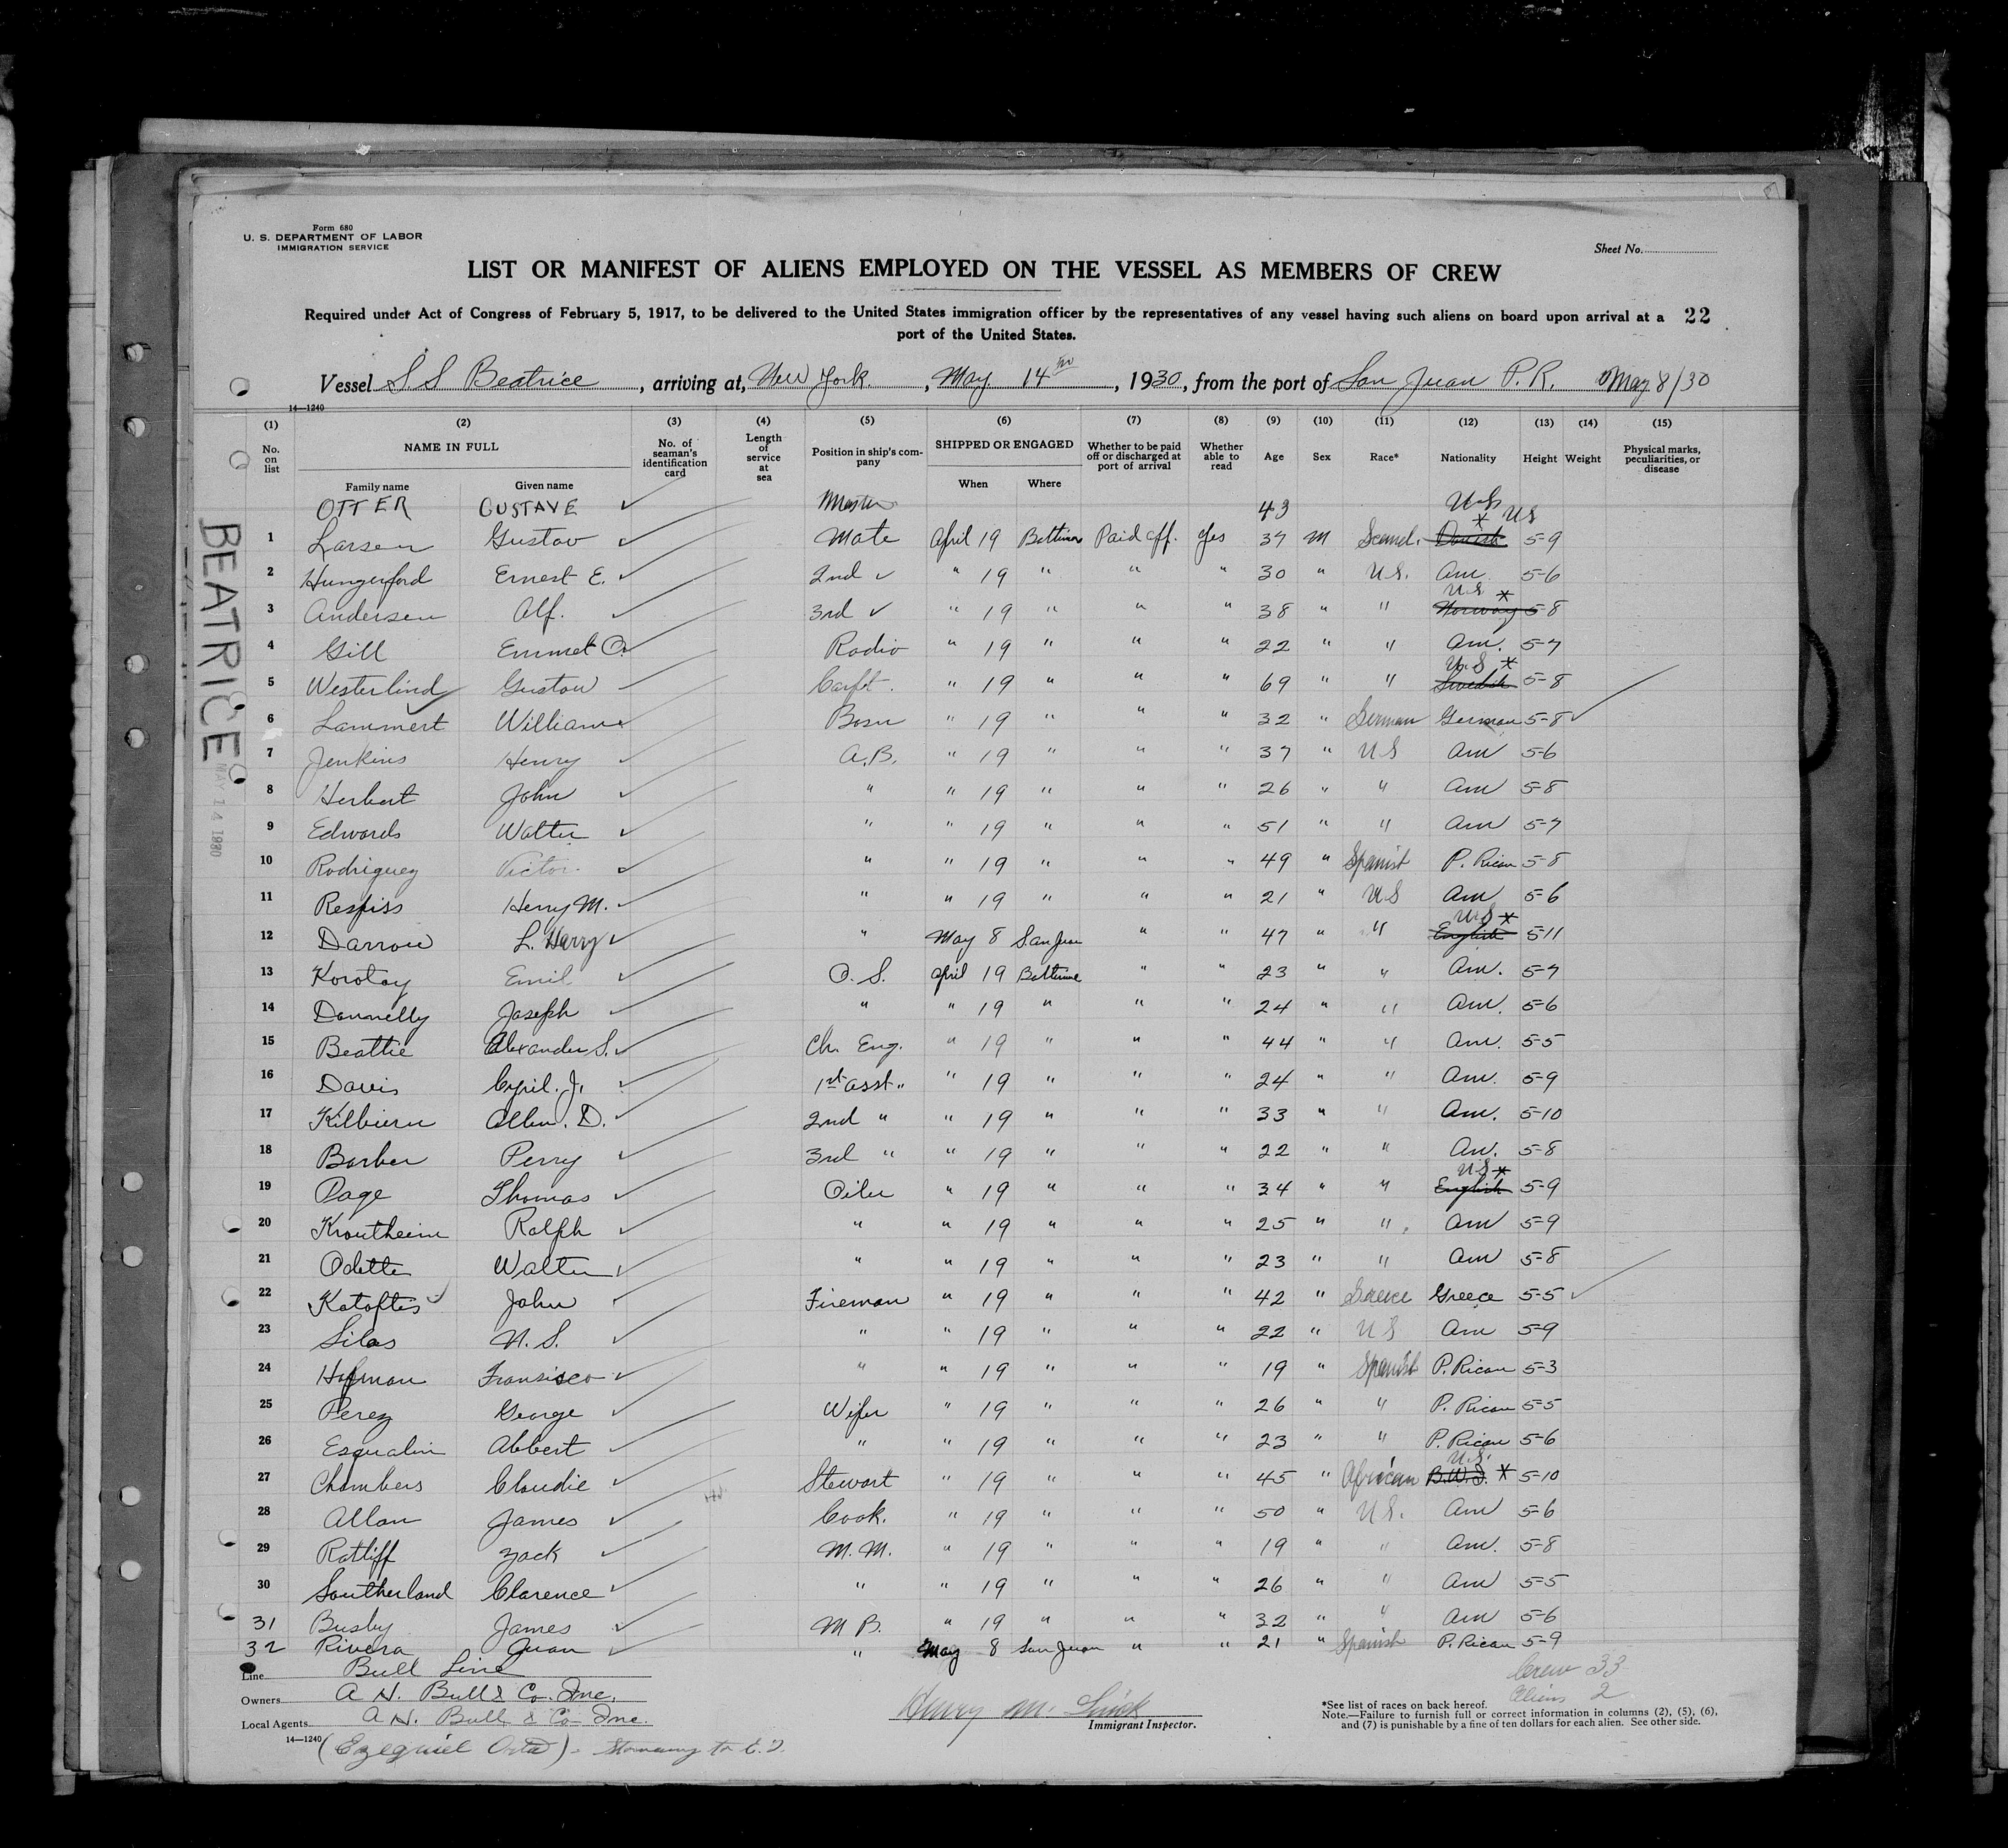 Form 680
U. S. DEPARTMENT OF LABOR
IMMIGRATION SERVICE
Sheet No.
LIST OR MANIFEST OF ALIENS EMPLOYED ON THE VESSEL AS MEMBERS OF CREW
Required under Act of Congress of February 5, 1917, to be delivered to the United States immigration officer by the representatives of any vessel having such aliens on board upon arrival at a port of the United States.
22
Vessel S S Beatrice, arriving at, New York, May 14th, 1930, from the port of San Juan P.R. May 8/30
14—1240
(1) (2) (3) (4) (5) (6) (7) (8) (9) (10) (11) (12) (13) (14) (15)
No. on list NAME IN FULL No. of seaman's identification card Length of service at sea Position in ship's company SHIPPED OR ENGAGED Whether to be paid off or discharged at port of arrival Whether able to read Age Sex Race* Nationality Height Weight Physical marks, peculiarities, or disease
Family name Given name When Where
OTTER GUSTAVE Master 43 U.S
1 Larsen Gustav Mate April 19 Baltimore Paid off. Yes 37 M Scand. Danish * US 5-9
2 Hungerford Ernest E. 2nd " 19 " " " 30 " U.S. Am. 5-6
3 Andersen Alf. 3rd " 19 " " " 38 " " Norway U.S * 5-8
4 Gill Emmet O. Radio " 19 " " " 22 " " Am. 5-7
5 Westerlind Gustav Carpt. " 19 " " " 69 " " Swedish U.S * 5-8
6 Lammert William Bosn " 19 " " " 32 " German German 5-8
7 Jenkins Henry A.B. " 19 " " " 37 " U S Am 5-6
8 Herbert John " " 19 " " " 26 " " Am 5-8
9 Edwards Walter " " 19 " " " 51 " " Am 5-7
10 Rodriguez Victor " " 19 " " " 49 " Spanish P. Rican 5-8
11 Respiss Henry M. " " 19 " " " 21 " U S Am 5-6
12 Darrow L. Harry " May 8 San Juan " " 47 " " English U.S * 5-11
13 Korotay Emil O. S. April 19 Baltimore " " 23 " " Am. 5-7
14 Donnelly Joseph " " 19 " " " 24 " " Am. 5-6
15 Beattie Alexander S. Ch. Eng. " 19 " " " 44 " " Am. 5-5
16 Davis Cyril. J. 1st Asst " " 19 " " " 24 " " Am. 5-9
17 Kilbiern Allen. D. 2nd " " 19 " " " 33 " " Am. 5-10
18 Barber Perry 3rd " " 19 " " " 22 " " Am. 5-8
19 Page Thomas Oiler " 19 " " " 34 " " English U.S * 5-9
20 Kroutheim Ralph " " 19 " " " 25 " " Am 5-9
21 Odette Walter " " 19 " " " 23 " " Am 5-8
22 Katoftis John Fireman " 19 " " " 42 " Greece Greece 5-5
23 Silas N. S. " " 19 " " " 22 " U S Am 5-9
24 Hofman Fransisco " " 19 " " " 19 " Spanish P. Rican 5-3
25 Perez George Wiper " 19 " " " 26 " " P. Rican 5-5
26 Esqualin Albert " " 19 " " " 23 " " P. Rican 5-6
27 Chambers Claudie Stewart " 19 " " " 45 " African B.W.I. U.S. * 5-10
28 Allan James Cook. " 19 " " " 50 " U.S. Am 5-6
29 Ratliff Zack M. M. " 19 " " " 19 " " Am. 5-8
30 Southerland Clarence " " 19 " " " 26 " " Am 5-5
31 Busby James M B. " 19 " " " 32 " " Am 5-6
32 Rivera Juan " May 8 San Juan " " 21 " Spanish P. Rican 5-9
BEATRICE
MAY 14 1930
Line Bull Line
Owners A H. Bull & Co. Inc.
Local Agents A H. Bull & Co Inc.
14—1240
(Ezequiel
Henry M.
Immigrant Inspector.
Crew 33
Aliens 2
*See list of races on back hereof.
Note.—Failure to furnish full or correct information in columns (2), (5), (6), and (7) is punishable by a fine of ten dollars for each alien. See other side.